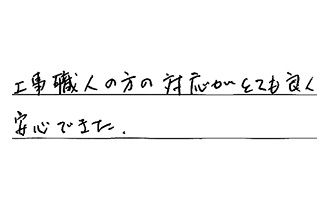 工事職人の方の対応がとても良く
安心できた.